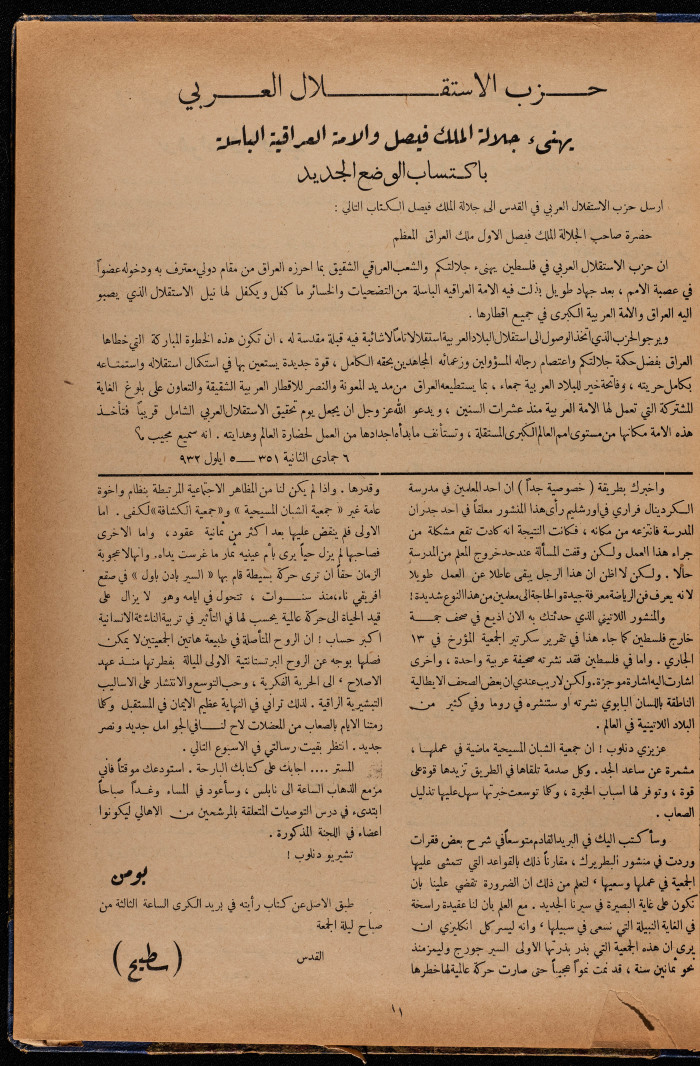 حزب الاستقلال العربي
يهنىء جلالة الملك فيصل والامة العراقية الباسلة
باكتساب الوضع الجديد
ارسل حزب الاستقلال العربي في القدس الى جلالة الملك فيصل الكتاب التالي :
حضرة صاحب الجلالة الملك فيصل الاول ملك العراق المعظم
ان حزب الاستقلال العربي في فلسطين يهنىء جلالتكم والشعب العراقي الشقيق بما احرزه العراق من مقام دولي معترف به ودخوله عضواً
في عصبة الامم ، بعد جهاد طويل بذلت فيه الامة العراقيه الباسلة من التضحيات والخسائر ما كفل ويكفل لها نيل الاستقلال الذي يصبو
اليه العراق والامة العربية الكبرى في جميع اقطارها .
ويرجو الحزب الذي اتخذ الوصول الى استقلال البلاد العربية استقلالا تاماً لا شائبة فيه قبلة مقدسة له ، ان تكون هذه الخطوة المباركة التي خطاها
العراق بفضل حكمة جلالتكم واعتصام رجاله المسؤولين وزعمائه المجاهدين بحقه الكامل ، قوة جديدة يستعين بها في استكمال استقلاله واستمتاعه
بكامل حريته ، وفاتحة خير للبلاد العربية جمعاء ، بما يستطيعه العراق من مد يد المعونة والنصر للاقطار العربية الشقيقة والتعاون على بلوغ الغاية
المشتركة التي تعمل لها الامة العربية منذ عشرات السنين ، ويدعو الله عز وجل ان يجعل يوم تحقيق الاستقلال العربي الشامل قريباً فتأخذ
هذه الامة مكانها من مستوى امم العالم الكبرى المستقلة ، وتستأنف ما بدأه اجدادها من العمل لحضارة العالم وهدايته . انه سميع مجيب
٦ جمادى الثانية ٣٥١ — ٥ ايلول ٩٣٢
واخبرك بطريقة ( خصوصية جداً ) ان احد المعلمين في مدرسة
الكردينال فراري في اورشليم رأى هذا المنشور معلقاً في احد جدران
المدرسة فانتزعه من مكانه ، فكانت النتيجة انه كادت تقع مشكلة من
جراء هذا العمل ولكن وقفت المسألة عند حد خروج المعلم من المدرسة
حالا . ولكن لا اظن ان هذا الرجل يبقى عاطلا عن العمل طويلا
لانه يعرف فن الرياضة معرفة جيدة والحاجة الى معلمين من هذا النوع شديدة !
والمنشور اللاتيني الذي حدثتك به الان اذيع في صحف جمة
خارج فلسطين كما جاء هذا في تقرير سكرتير الجمعية المؤرخ في ١٣
الجاري . واما في فلسطين فقد نشرته صحيفة عربية واحدة ، واخرى
اشارت اليه اشارة موجزة . ولكن لا ريب عندي ان بعض الصحف الايطالية
الناطقة باللسان البابوي نشرته او ستنشره في روما وفي كثير من
البلاد اللاتينية في العالم .
عزيزي دنلوب ! ان جمعية الشبان المسيحية ماضية في عملها ،
مشمرة عن ساعد الجد . وكل صدمة تلقاها في الطريق تزيدها قوة على
قوة ، وتوفر لها اسباب الخبرة ، وكلما توسعت خبرتها سهل عليها تذليل
الصعاب .
وسأكتب اليك في البريد القادم متوسعاً في شرح بعض فقرات
وردت في منشور البطريرك ، مقارناً ذلك بالقواعد التي تتمشى عليها
الجمعية في عملها وسعيها ، لتعلم من ذلك ان الضرورة تقضي علينا بان
نكون على غاية البصيرة في سيرنا الجديد . مع العلم بان لنا عقيدة راسخة
في الغاية النبيلة التي نسعى في سبيلها ، وانه ليسر كل انكليزي ان
يرى ان هذه الجمعية التي بذر بذرتها الاولى السير جورج وليمز منذ
نحو ثمانين سنة ، قد نمت نمواً عجيباً حتى صارت حركة عالمية لها خطرها
وقدرها . واذا لم يكن لنا من المظاهر الاجتماعية المرتبطة بنظام واخوة
عامة غير « جمعية الشبان المسيحية » و« جمعية الكشافة » لكفى . اما
الاولى فلم ينقض عليها بعد اكثر من ثمانية عقود ، واما الاخرى
فصاحبها لم يزل حياً يرى بأم عينيه ثمار ما غرست يداه . وانها لاعجوبة
الزمان حقاً ان ترى حركة بسيطة قام بها « السير بادن باول » في صقع
افريقي ناء ، منذ سنوات ، تتحول في ايامه وهو لا يزال على
قيد الحياة الى حركة عالية يحسب لها في التأثير في تربية الناشئة الانسانية
اكبر حساب ! ان الروح المتأصلة في طبيعة هاتين الجمعيتين لا يمكن
فصلها بوجه عن الروح البرتستانتية الاولى الميالة بفطرتها منذ عهد
الاصلاح ، الى الحرية الفكرية ، وحب التوسع والانتشار على الاساليب
التبشيرية الراقية . لذلك تراني في النهاية عظيم الايمان في المستقبل وكلما
رمتنا الايام بالصعاب من المعضلات لاح لنا في الجو امل جديد ونصر
جديد . انتظر بقيت رسالتي في الاسبوع التالي .
المستر .... اجابك على كتابك البارحة . استودعك موقتاً فاني
مزمع الذهاب الساعة الى نابلس ، وسأعود في المساء وغداً صباحاً
ابتدىء في درس التوصيات المتعلقة بالمرشحين من الاهالي ليكونوا
اعضاء في اللجنة المذكورة .
تشيريو دنلوب !
بومن
طبق الاصل عن كتاب رأيته في بريد الكرى الساعة الثالثة من
صباح ليلة الجمعة
القدس
( سطيح )
١١